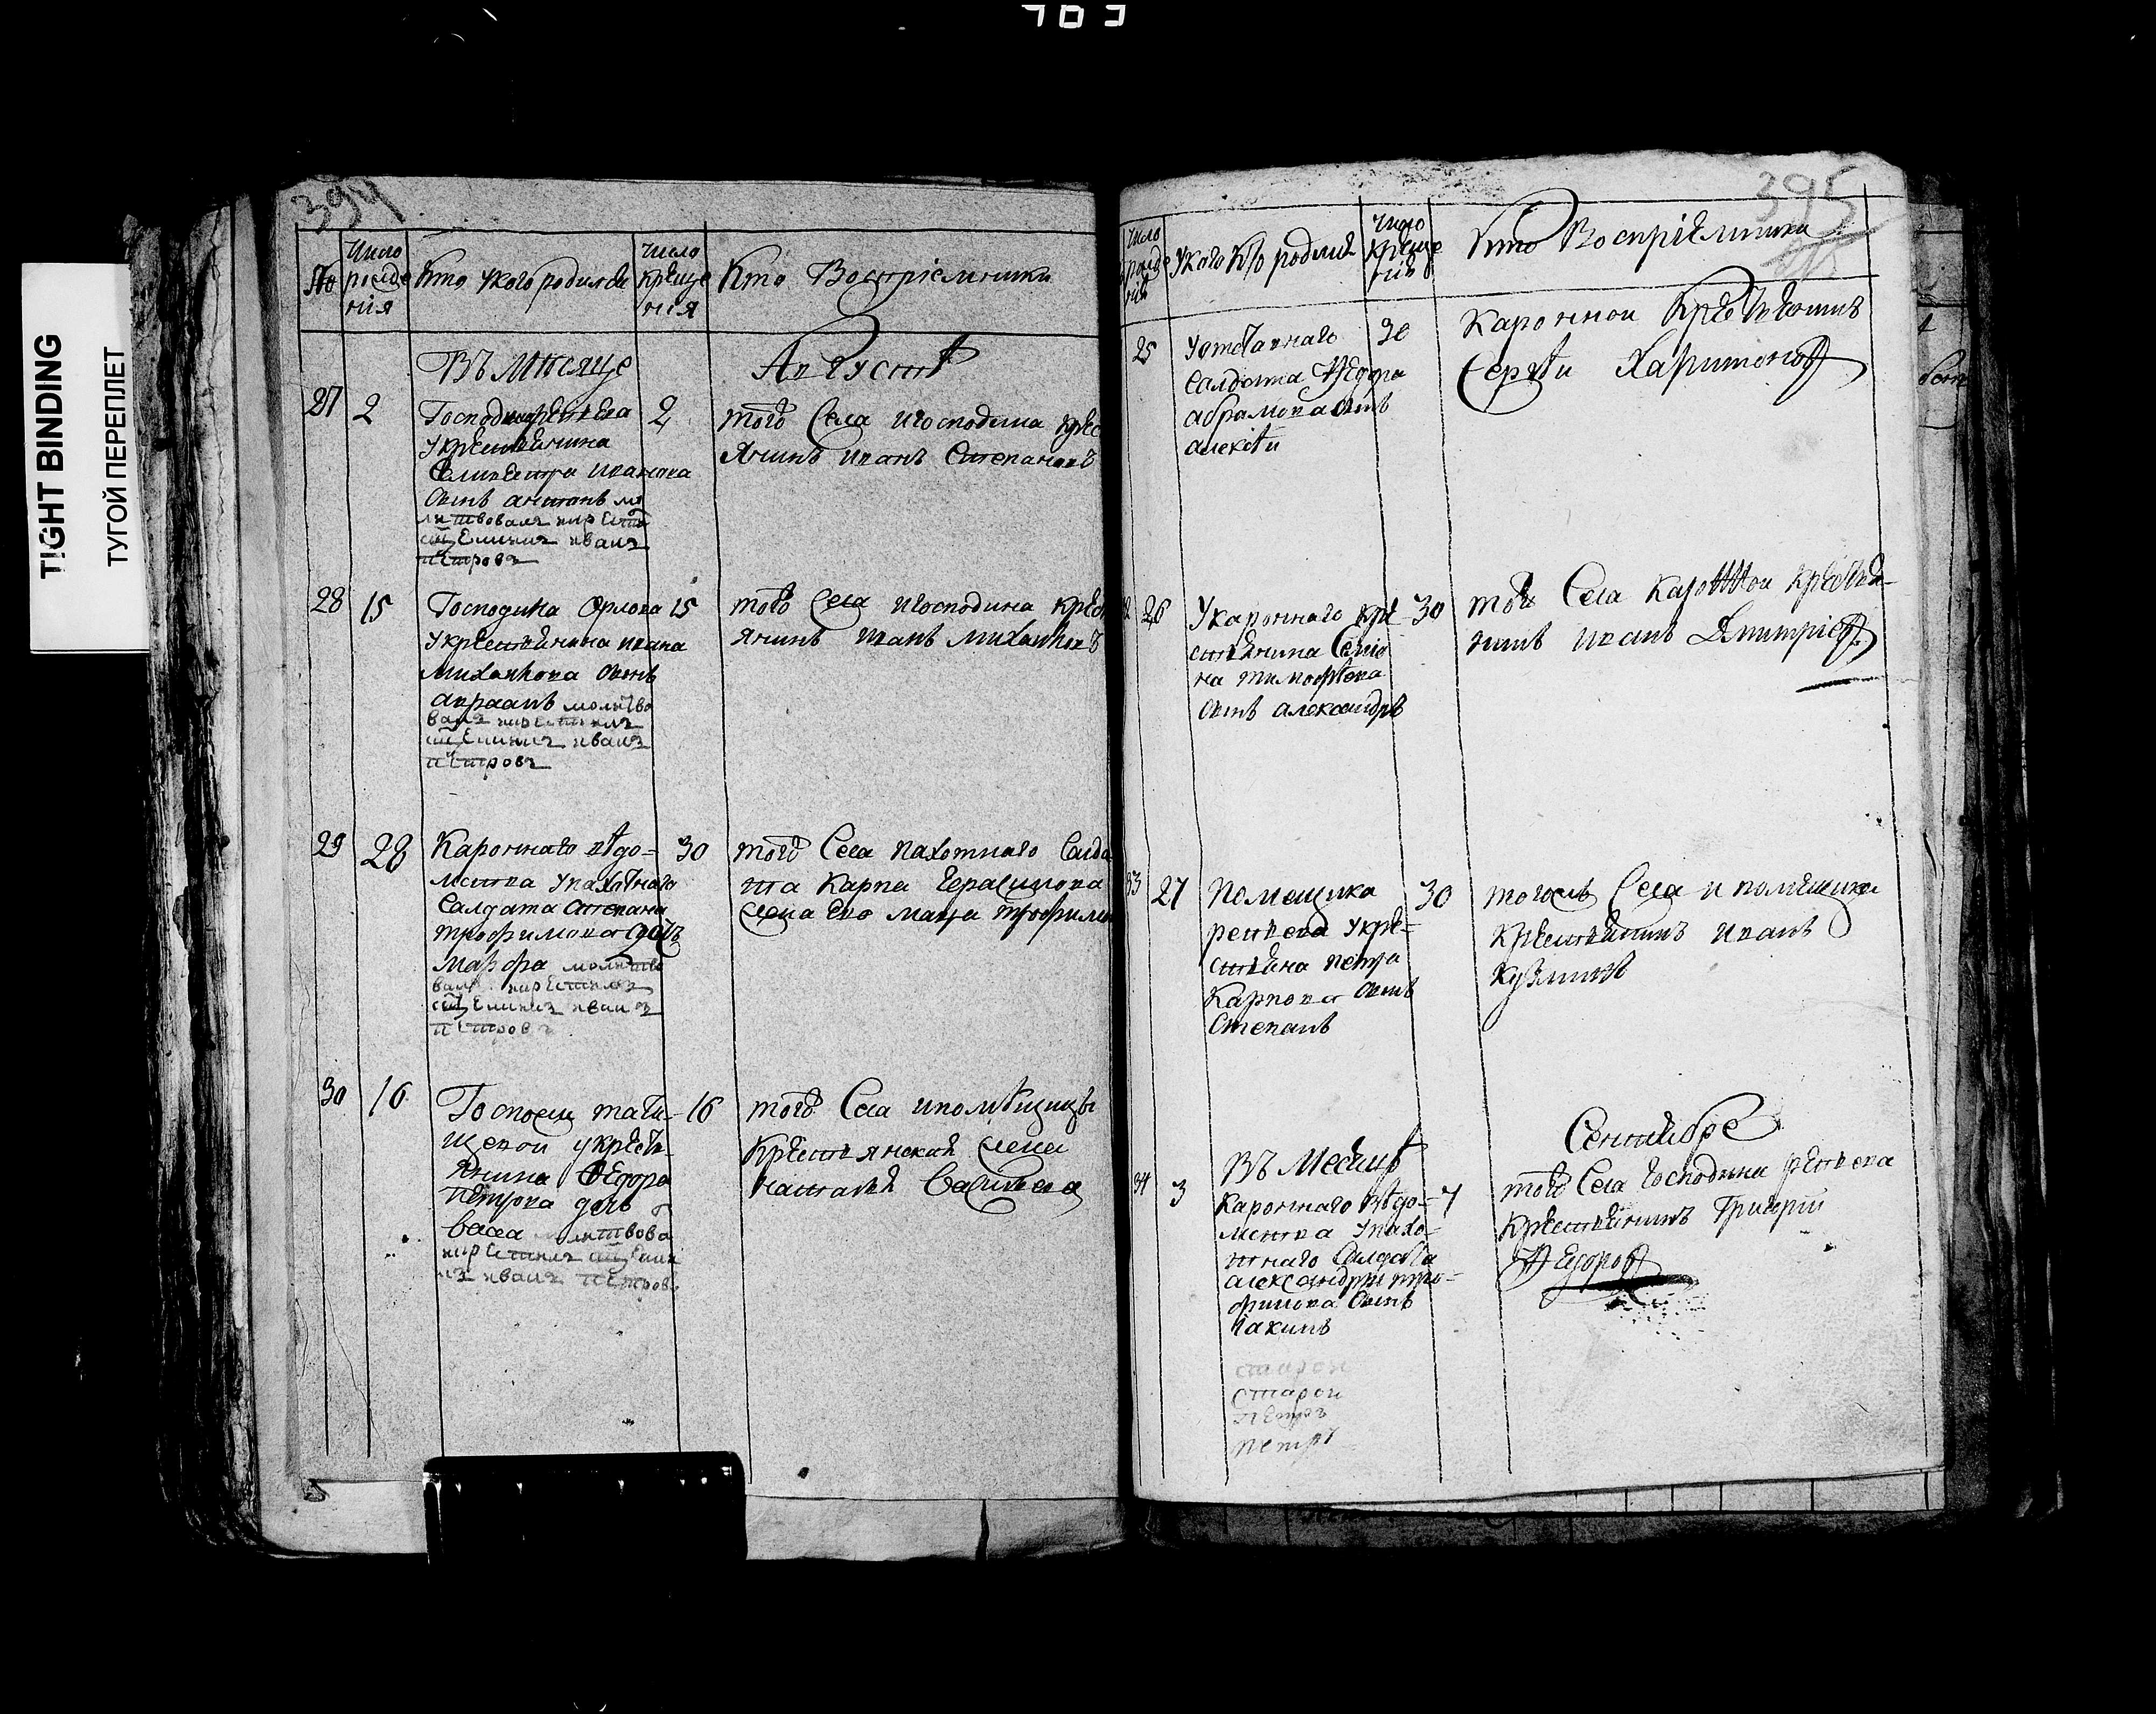 703
TIGHT BINDING
ТУГОЙ ПЕРЕПЛЕТ
394
№
Число рожде нія
Кто у кого родился
Число креще нія
Кто Воспріемники
Въ Месяце Августѣ
27
2
Господина
у крестьянина
Селивестра иванова
сынъ антонъ мо
литвовалъ икрестилъ
сщенникъ иванъ
петровъ
2
того Села игосподина крес
янинъ иванъ Степановъ
28
15
Господина Орлова
у крестьянина ивана
михаилова сынъ
авраамъ молитво
валъ икрестилъ
сщенникъ иванъ
петровъ
15
того Села игосподина крест
янинъ иванъ михаиловъ
29
28
Кароннаго вѣдо=
мства у пахатнаго
Салдата Степана
трофимова дочь
марфа молитво
валъ икрестилъ
сщенникъ иванъ
петровъ
30
того Села пахотнаго Салда
та Карпа Герасимова
жена Его марья трофимо
30
16
Госпожи тати=
щевой у кресть
янина Федора
петрова дочь
васса молитвова
икрестилъ сщенни
къ иванъ петровъ
16
того Села ипомѣщицы
крестьянская жена
наталия Васильева
395
Число рожде нія
У кого кто родился
Число креще нія
Кто Воспріемники
25
У отставнаго
Салдата Федора
абрамова сынъ
алексѣи
30
Каронной Крестьянинъ
Сергѣи Харитоновъ
26
У кароннаго кре
стьянина Семіо
на тимофѣева
сынъ александръ
30
того Села Каронной крестья-
нинъ иванъ Дмитріевъ
33
27
Помещика
у кре=
стьяна петра
Карпова сынъ
Степанъ
30
тогожъ Села и помещика
крестьянинъ иванъ
Кузминъ
Въ Месяцѣ Сентябре
34
3
Кароннаго вѣдо=
мства у пахо=
тнаго Салдата
александра тро=
фимова сынъ
иакимъ
4
того Села Господина
Крестьянинъ Григорій
Федоровъ
старои
Старои
петръ
петръ